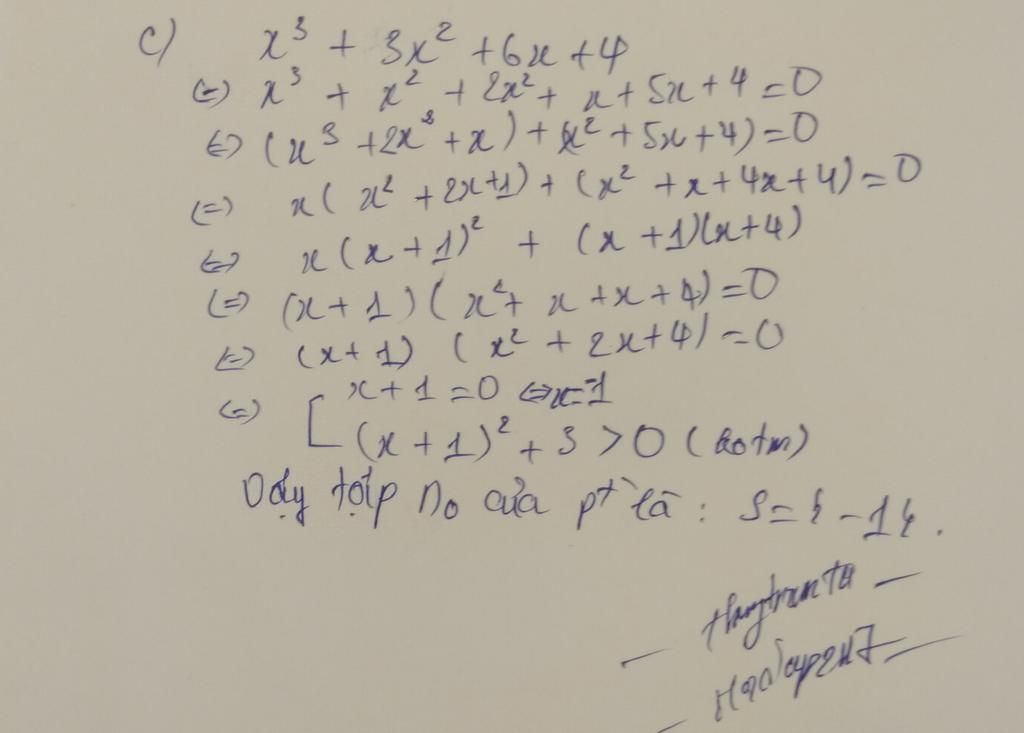 c) x³ + 3x² + 6x + 4
(=) x³ + x² + 2x² + x + 5x + 4 = 0
(=) (x³ + 2x² + x) + (x² + 5x + 4) = 0
(=) x( x² + 2x+1) + (x² + x + 4x + 4) = 0
(=) x(x + 1)² + (x + 1)(x+4)
(=) (x + 1)( x² + x + x + 4) = 0
(=) (x + 1) ( x² + 2x + 4) = 0
(=) [ x + 1 = 0 (=) x = -1
(x + 1)² + 3 > 0 (ko tm)
Vậy tập no của pt là : S = { -1 }.
thuytrunta
Hoidap247